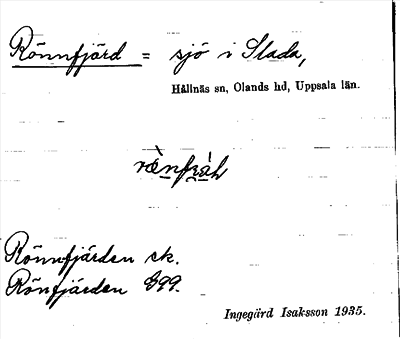 Rönnfjärd = sjö i Slada,
Hållnäs sn, Olands hd, Uppsala län.
Rönnfjärden ek.
Rönfjärden G99.
Ingegärd Isaksson 1935.